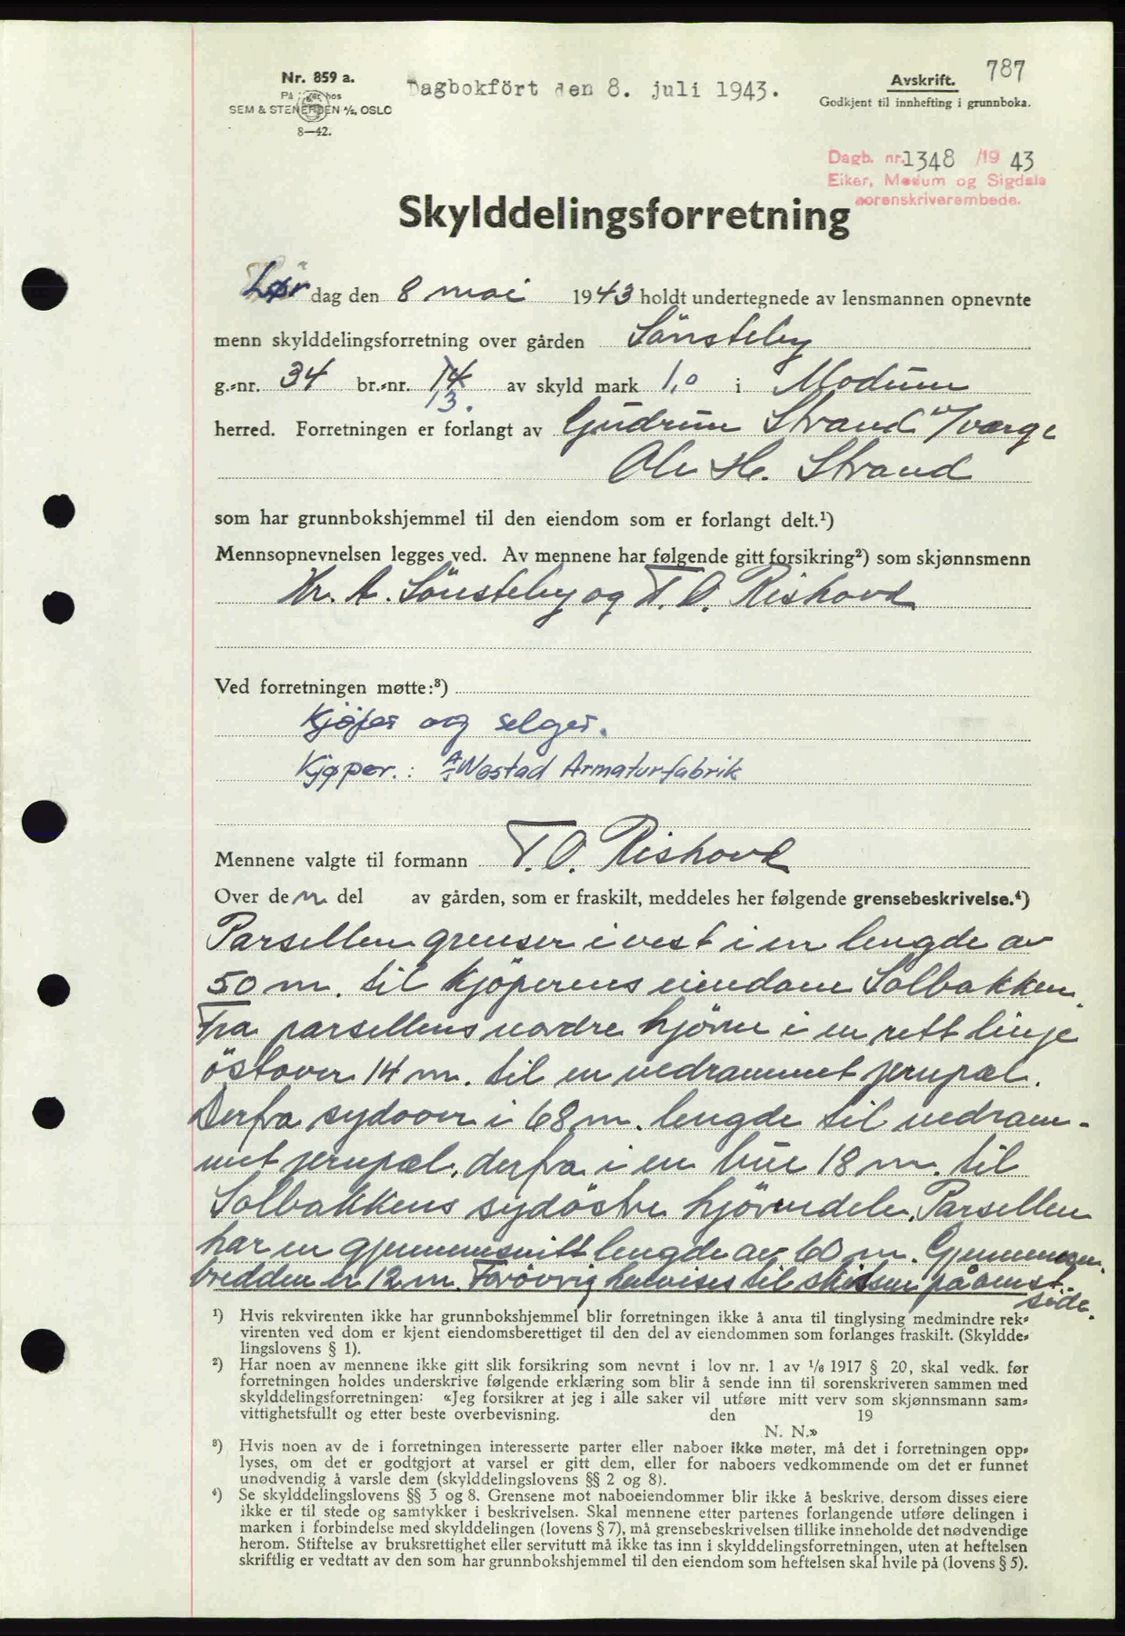 787
Nr. 859 a.
På lager hos
SEM & STENERSEN A/S, OSLO
8—42.
Dagbokfört den 8. juli 1943.
Avskrift.
Godkjent til innhefting i grunnboka.
Dagb. nr. 1348 /19 43
Eiker, Modum og Sigdals
sorenskriverembede.
Skylddelingsforretning
Lør dag den 8 mai 1943 holdt undertegnede av lensmannen opnevnte
menn skylddelingsforretning over gården Sönsteby
g.-nr. 34 br.-nr. 14 av skyld mark 1,0 i Modum
13.
herred. Forretningen er forlangt av Gudrun Strand v/verge
Ole H. Strand
som har grunnbokshjemmel til den eiendom som er forlangt delt.¹)
Mennsopnevnelsen legges ved. Av mennene har følgende gitt forsikring²) som skjønnsmenn
Kr. A. Sönsteby og T. O. Rishovd
Ved forretningen møtte:³)
Kjøper og selger.
Kjøper.: A/S Westad Armaturfabrik
Mennene valgte til formann T. O. Rishovd
Over den del av gården, som er fraskilt, meddeles her følgende grensebeskrivelse.⁴)
Parsellen grenser i vest i en lengde av
50 m. til kjöperens eiendom Solbakken.
Fra parsellens nordre hjörne i en rett linje
östover 14 m. til en nedrammet jernpæl.
Derfra sydover i 68 m. lengde til nedram-
met jernpæl, derfra i en bue 18 m. til
Solbakkens sydöstre hjörnedele. Parsellen
har en gjennemsnitt lengde av 60 m. Gjennemsn.
bredden er 12 m. Forövrig henvises til skissen på omst.
side.
¹) Hvis rekvirenten ikke har grunnbokshjemmel blir forretningen ikke å anta til tinglysing medmindre rek-
virenten ved dom er kjent eiendomsberettiget til den del av eiendommen som forlanges fraskilt. (Skyldde-
lingslovens § 1).
²) Har noen av mennene ikke gitt slik forsikring som nevnt i lov nr. 1 av 1/6 1917 § 20, skal vedk. før
forretningen holdes underskrive følgende erklæring som blir å sende inn til sorenskriveren sammen med
skylddelingsforretningen: «Jeg forsikrer at jeg i alle saker vil utføre mitt verv som skjønnsmann sam-
vittighetsfullt og etter beste overbevisning. den 19
N. N.»
³) Hvis noen av de i forretningen interesserte parter eller naboer ikke møter, må det i forretningen opp-
lyses, om det er godtgjort at varsel er gitt dem, eller for naboers vedkommende om det er funnet
unødvendig å varsle dem (skylddelingslovens §§ 2 og 8).
⁴) Se skylddelingslovens §§ 3 og 8. Grensene mot naboeiendommer blir ikke å beskrive, dersom disses eiere
ikke er til stede og samtykker i beskrivelsen. Skal mennene etter partenes forlangende utføre delingen i
marken i forbindelse med skylddelingen (lovens § 7), må grensebeskrivelsen tillike inneholde det nødvendige
herom. Stiftelse av bruksrettighet eller servitutt må ikke tas inn i skylddelingsforretningen, uten at heftelsen
skriftlig er vedtatt av den som har grunnbokshjemmel til den eiendom som heftelsen skal hvile på (lovens § 5).